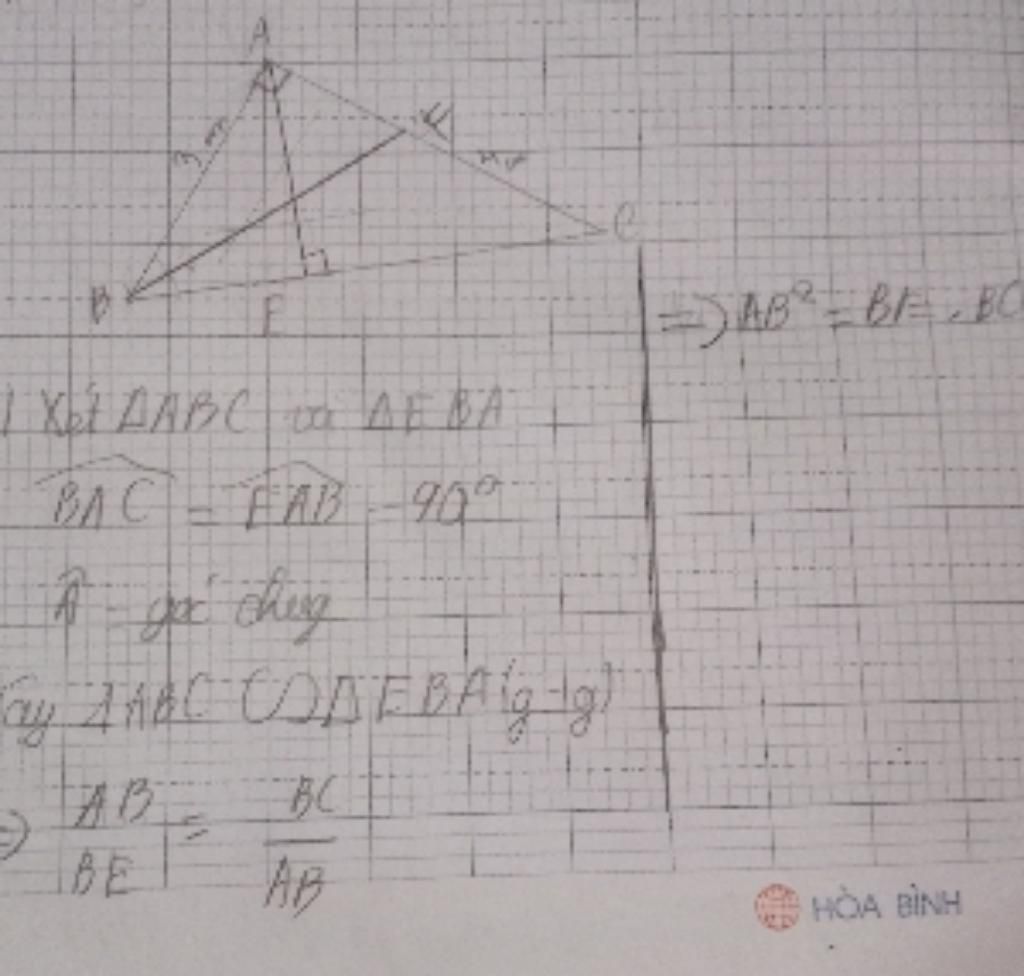 A
3 cm
K
B
E
C
) Xét ΔABC và ΔEBA
BAC = EAB = 90°
góc chug
Vậy ΔABC ∽ ΔEBA (g-g)
=> AB/BE = BC/AB
=> AB² = BE . BC
HÒA BÌNH